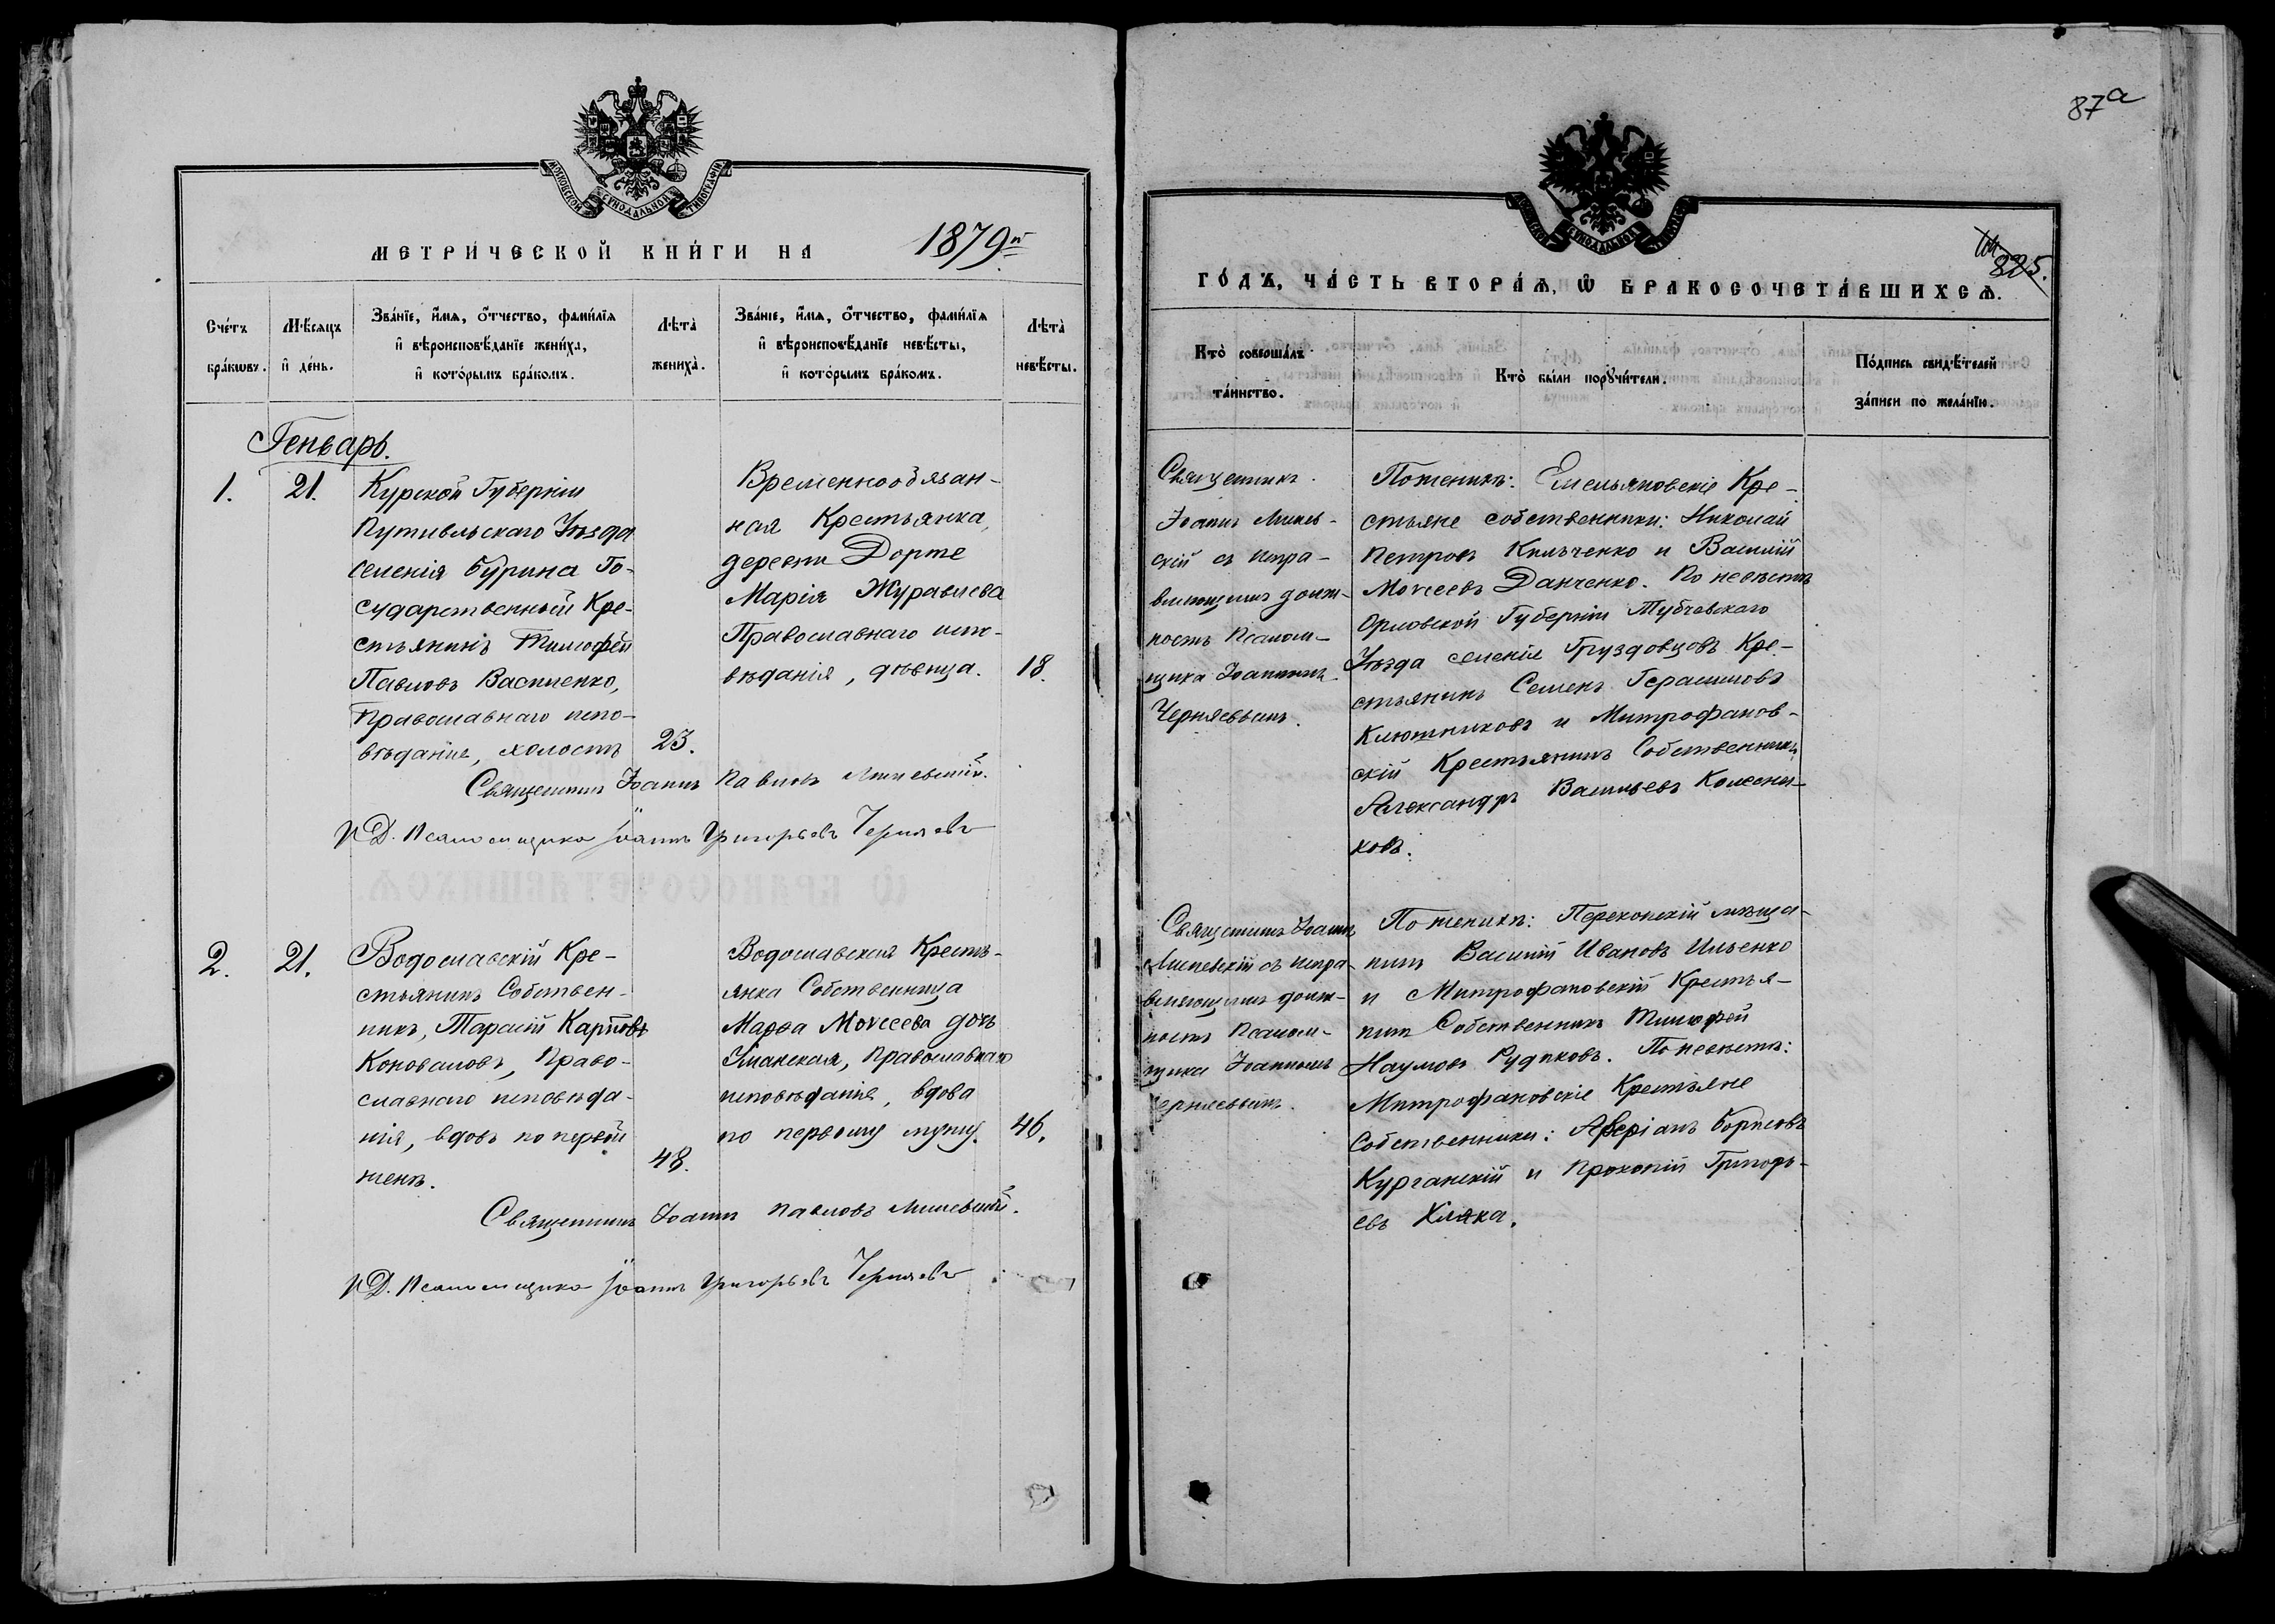 87а
МОСКОВСКОЙ СУНОДАЛЬНОЙ ТИПОГРАФИИ
МЕТРИ́ЧЕСКОЙ КНИ́ГИ НА 1879й
Сче́тъ бра́кѡвъ.
Мѣ́сяцъ и҆ де́нь.
Зва́нїе, и҆́мѧ, ѻ҆́тчество, фами́лїѧ
и҆ вѣроисповѣ́данїе жениха̀,
и҆ кото́рымъ бра́комъ.
Лѣ́та жениха̀.
Зва́нїе, и҆́мѧ, ѻ҆́тчество, фами́лїѧ
и҆ вѣроисповѣ́данїе невѣ́сты,
и҆ кото́рымъ бра́комъ.
Лѣ́та невѣ́сты.
Генварь.
1.
21.
Курской Губерніи
Путивльскаго Уѣзда
селенія Бурина Го-
сударственный Кре-
стьянинъ Тимофей
Павловъ Васпленко,
Православнаго испо-
вѣданіе, холостъ
23.
Временнообязан-
ная Крестьянка,
деревни Дорте
Марія Журавлева
Православнаго испо-
вѣданія, дѣвица.
18.
Священникъ Іоаннъ Павловъ
И Д. Псаломщика Іоаннъ Григорьевъ Черняевъ
2.
21.
Водославскій Кре-
стьянинъ Собствен-
никъ, Тарасій Карповъ
Коноваловъ, Право-
славнаго исповѣда-
нія, вдовъ по первой
женѣ.
48.
Водославская Кресть-
янка Собственница
Марѳа Моѵсеева дочь
Уманская, Православнаго
исповѣданія, вдова
по первому мужу.
46.
Священникъ Іоаннъ Павловъ
И Д. Псаломщика Іоаннъ Григорьевъ Черняевъ
825.
ГО́ДЪ, ЧА́СТЬ ВТОРА́Ѧ, Ѽ БРАКОСОЧЕТА́ВШИХСѦ.
Кто̀ соверша́лъ
та́инство.
Кто̀ бы́ли порꙋчи́тели.
По́дпись свидѣ́телей
за́писи по жела́нїю.
Священникъ
Іоаннъ
скій съ испра-
вляющимъ долж-
ность Псалом-
щика Іоанномъ
Черняевымъ.
По женихѣ: Емельяновскіе Кре-
стьяне собственники: Николай
Петровъ Кильченко и Василій
Моѵсеевъ Данченко. По невѣстѣ
Орловской Губерніи Тубчевскаго
Уѣзда селенія Груздовцовъ Кре-
стьянинъ Семенъ Герасимовъ
Ключниковъ и Митрофанов-
скій Крестьянинъ Собственникъ
Александръ Васильевъ Колесни-
ковъ.
Священникъ Іоаннъ
съ испра-
вляющимъ долж-
ность Псалом-
щика Іоанномъ
Черняевымъ.
По женихѣ: Перекопскій мѣща-
нинъ Василій Ивановъ Ильенко
и Митрофановскій Крестья-
нинъ Собственникъ Тимофей
Наумовъ Рудиковъ. По невѣстѣ:
Митрофановскіе Крестьяне
Собственники: Аверіанъ Борисовъ
Курганскій и Прокопій Григорь-
евъ Кляка.